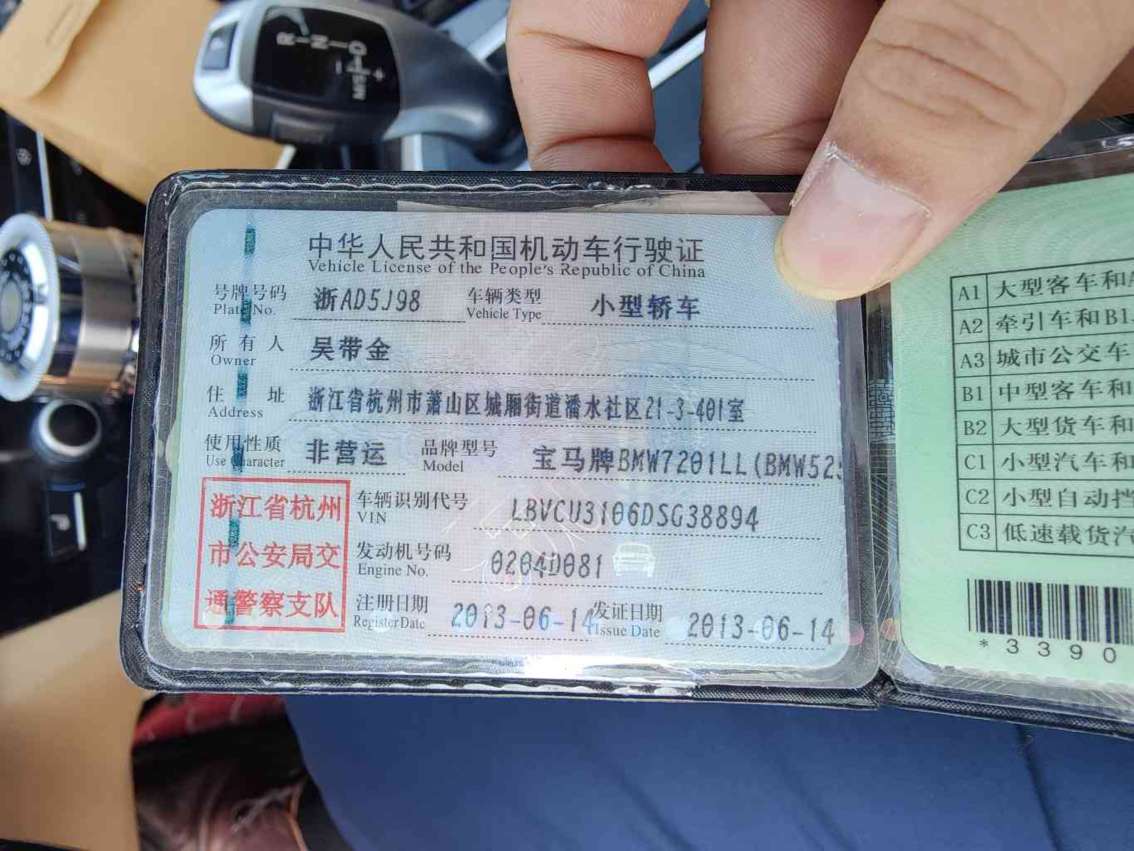 R N D
M/S + -
中华人民共和国机动车行驶证
Vehicle License of the People's Republic of China
号牌号码 浙AD5J98 车辆类型 小型轿车
Plate No. Vehicle Type
所有人 吴带金
Owner
住址 浙江省杭州市萧山区城厢街道潘水社区21-3-401室
Address
使用性质 非营运 品牌型号 宝马牌BMW7201LL(BMW525
Use Character Model
浙江省杭州
市公安局交
通警察支队
车辆识别代号 LBVCU3106DSG38894
VIN
发动机号码 0204D081
Engine No.
注册日期 2013-06-14 发证日期 2013-06-14
Register Date Issue Date
A1 大型客车和A
A2 牵引车和B1、
A3 城市公交车
B1 中型客车和
B2 大型货车和
C1 小型汽车和
C2 小型自动挡
C3 低速载货汽
*3390